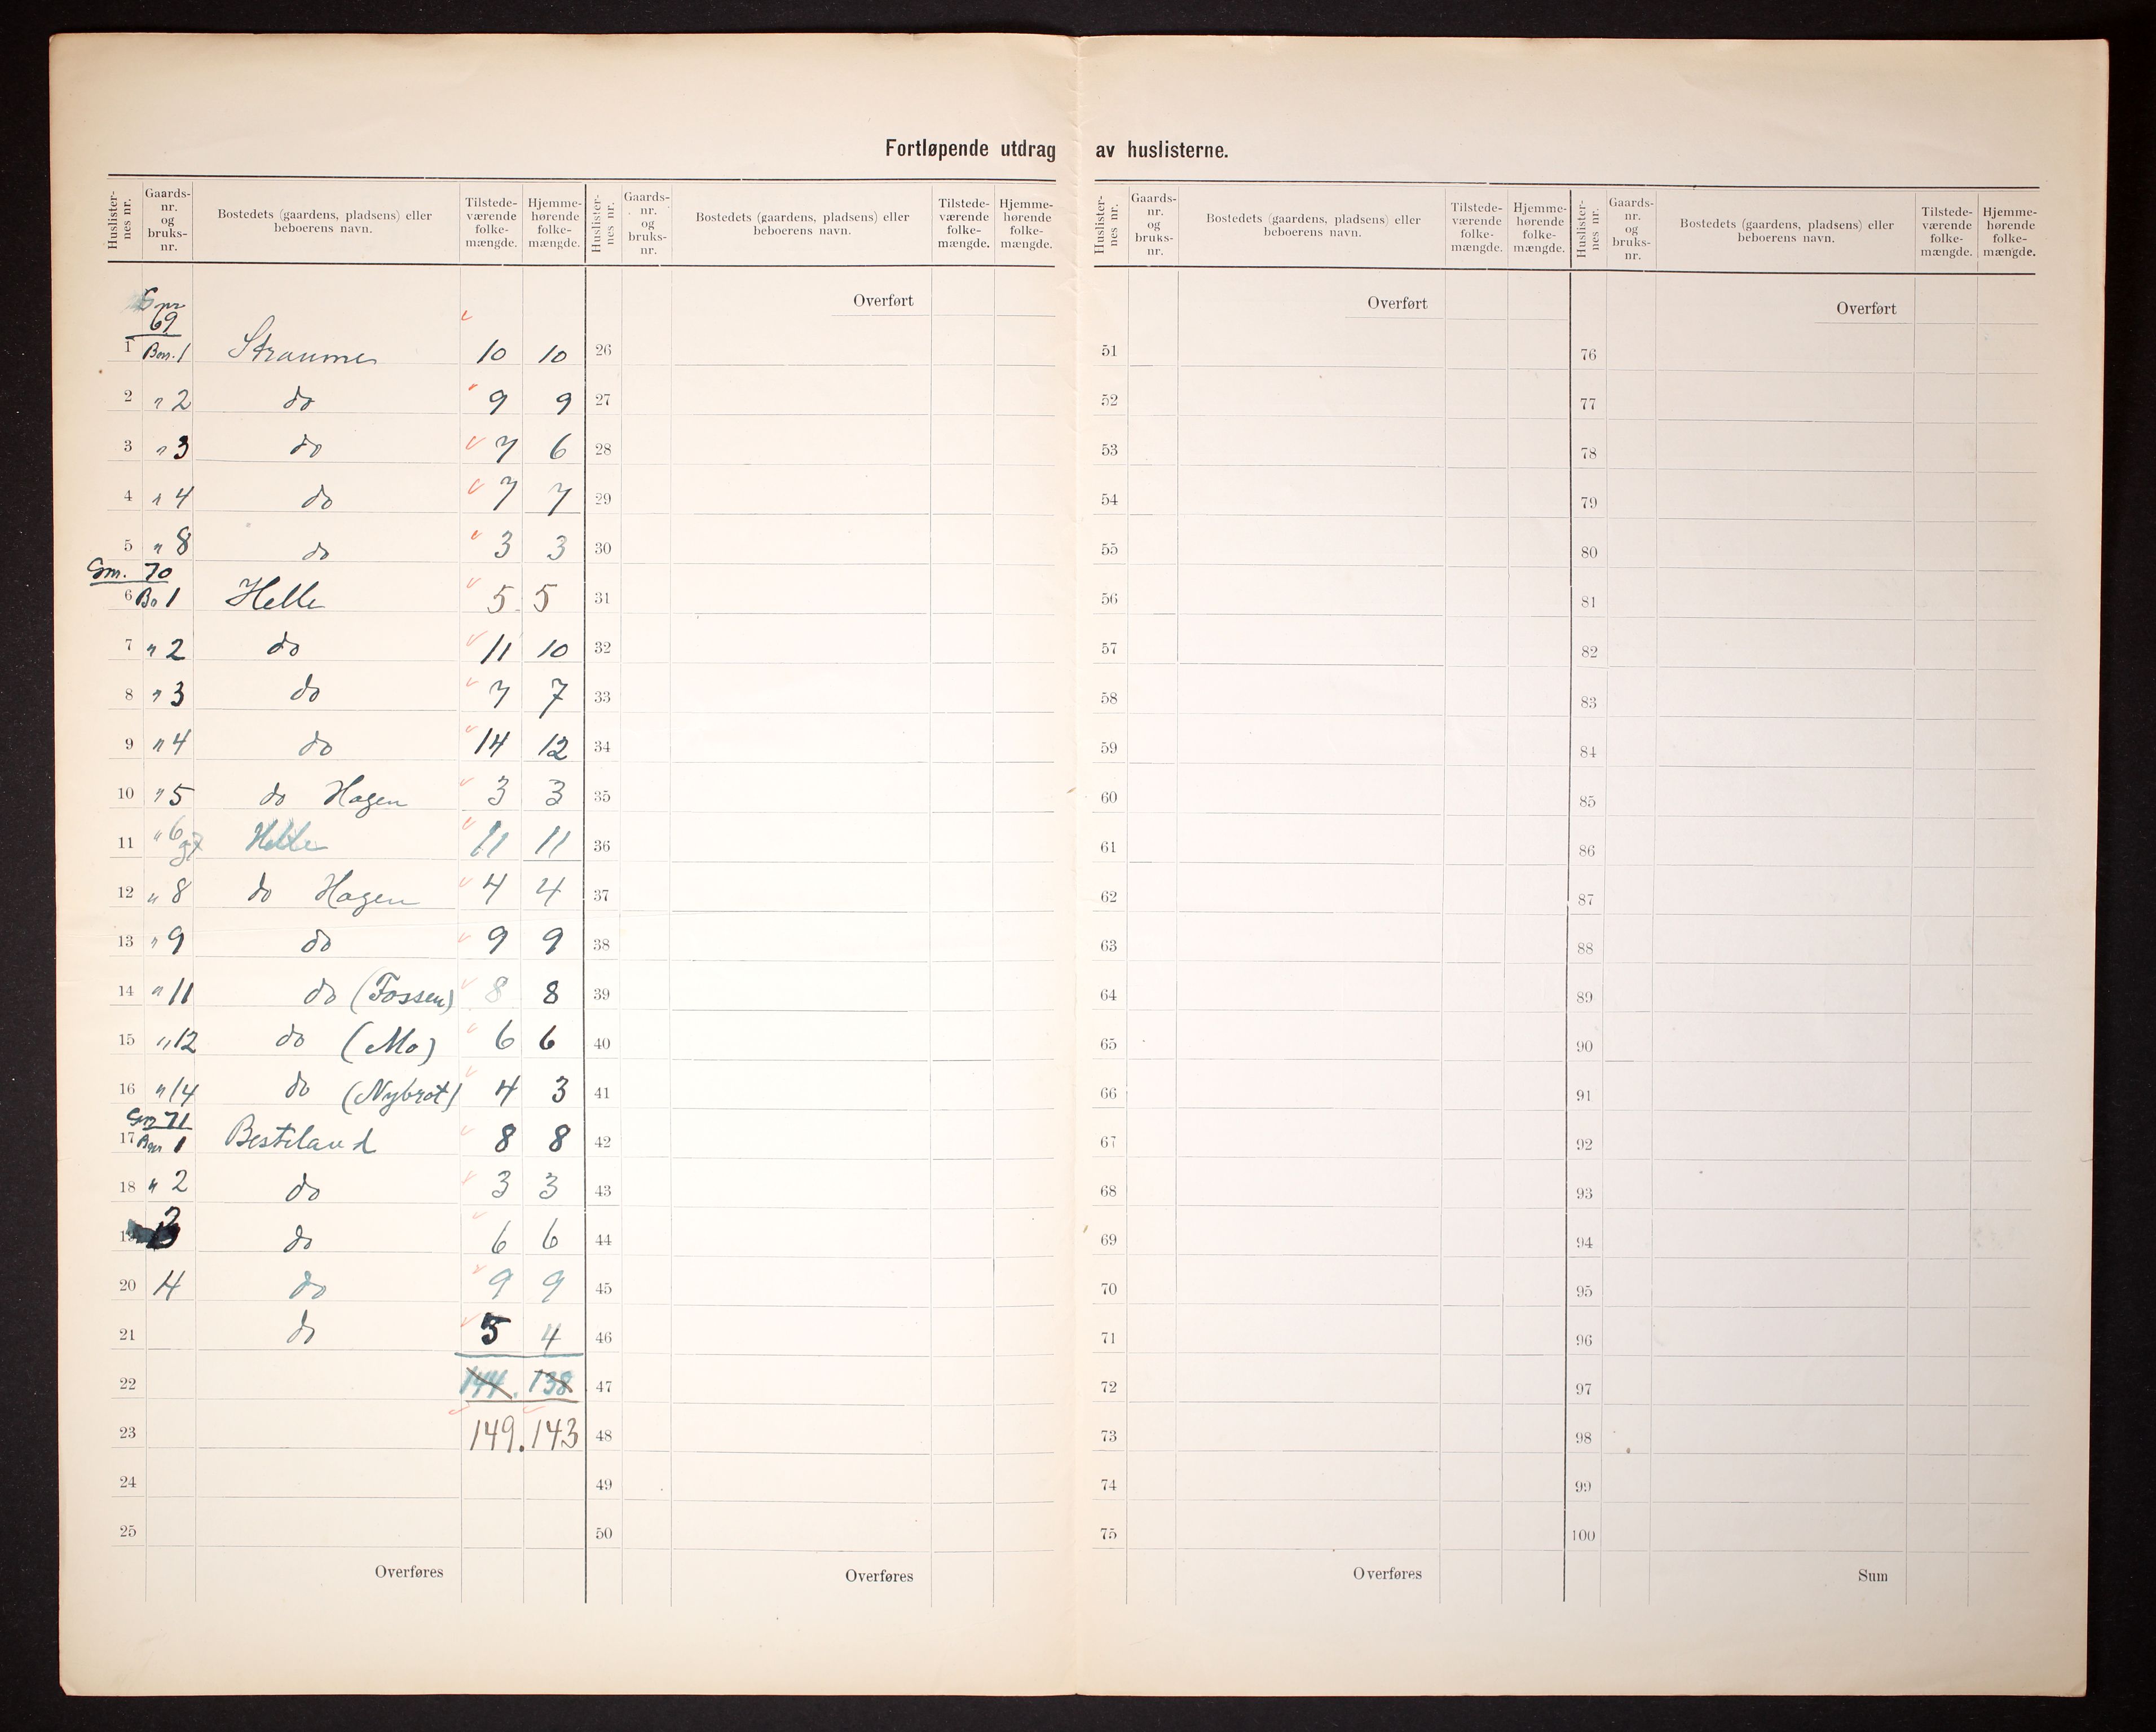 Fortløpende utdrag av huslisterne.
Huslister-nes nr. Gaards-nr. og bruks-nr. Bostedets (gaardens, pladsens) eller beboerens navn. Tilstede-værende folke-mængde. Hjemme-hørende folke-mængde.
Huslister-nes nr. Gaards-nr. og bruks-nr. Bostedets (gaardens, pladsens) eller beboerens navn. Tilstede-værende folke-mængde. Hjemme-hørende folke-mængde.
Huslister-nes nr. Gaards-nr. og bruks-nr. Bostedets (gaardens, pladsens) eller beboerens navn. Tilstede-værende folke-mængde. Hjemme-hørende folke-mængde.
Huslister-nes nr. Gaards-nr. og bruks-nr. Bostedets (gaardens, pladsens) eller beboerens navn. Tilstede-værende folke-mængde. Hjemme-hørende folke-mængde.
Gnr 69
1 Bnr. 1 Straume 10 10
2 " 2 do 9 9
3 " 3 do 7 6
4 " 4 do 7 7
5 " 8 do 3 3
Gnr. 70
6 Bn 1 Helle 5 5
7 " 2 do 11 10
8 " 3 do 7 7
9 " 4 do 14 12
10 " 5 do Hagen 3 3
11 " 6 og 7 Helle 11 11
12 " 8 do Hagen 4 4
13 " 9 do 9 9
14 " 11 do (Fossen) 8 8
15 " 12 do (Mo) 6 6
16 " 14 do (Nybrot) 4 3
Gnr 71
17 Bnr 1 Besteland 8 8
18 " 2 do 3 3
19 3 do 6 6
20 4 do 9 9
21 do 5 4
22 144. 138
23 149. 143
24
25
Overføres
Overført
26
27
28
29
30
31
32
33
34
35
36
37
38
39
40
41
42
43
44
45
46
47
48
49
50
Overføres
Overført
51
52
53
54
55
56
57
58
59
60
61
62
63
64
65
66
67
68
69
70
71
72
73
74
75
Overføres
Overført
76
77
78
79
80
81
82
83
84
85
86
87
88
89
90
91
92
93
94
95
96
97
98
99
100
Sum